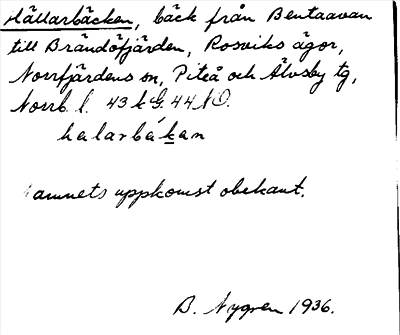 Hällarbäcken, bäck från Bentaavan
till Brändöfjärden, Rosviks ägor,
Norrfjärdens sn, Piteå och Älvsby tg,
Norrb. l. 43 k G. 44 N O.
halarbákan
amnets uppkomst obekant.
B. Nygren 1936.